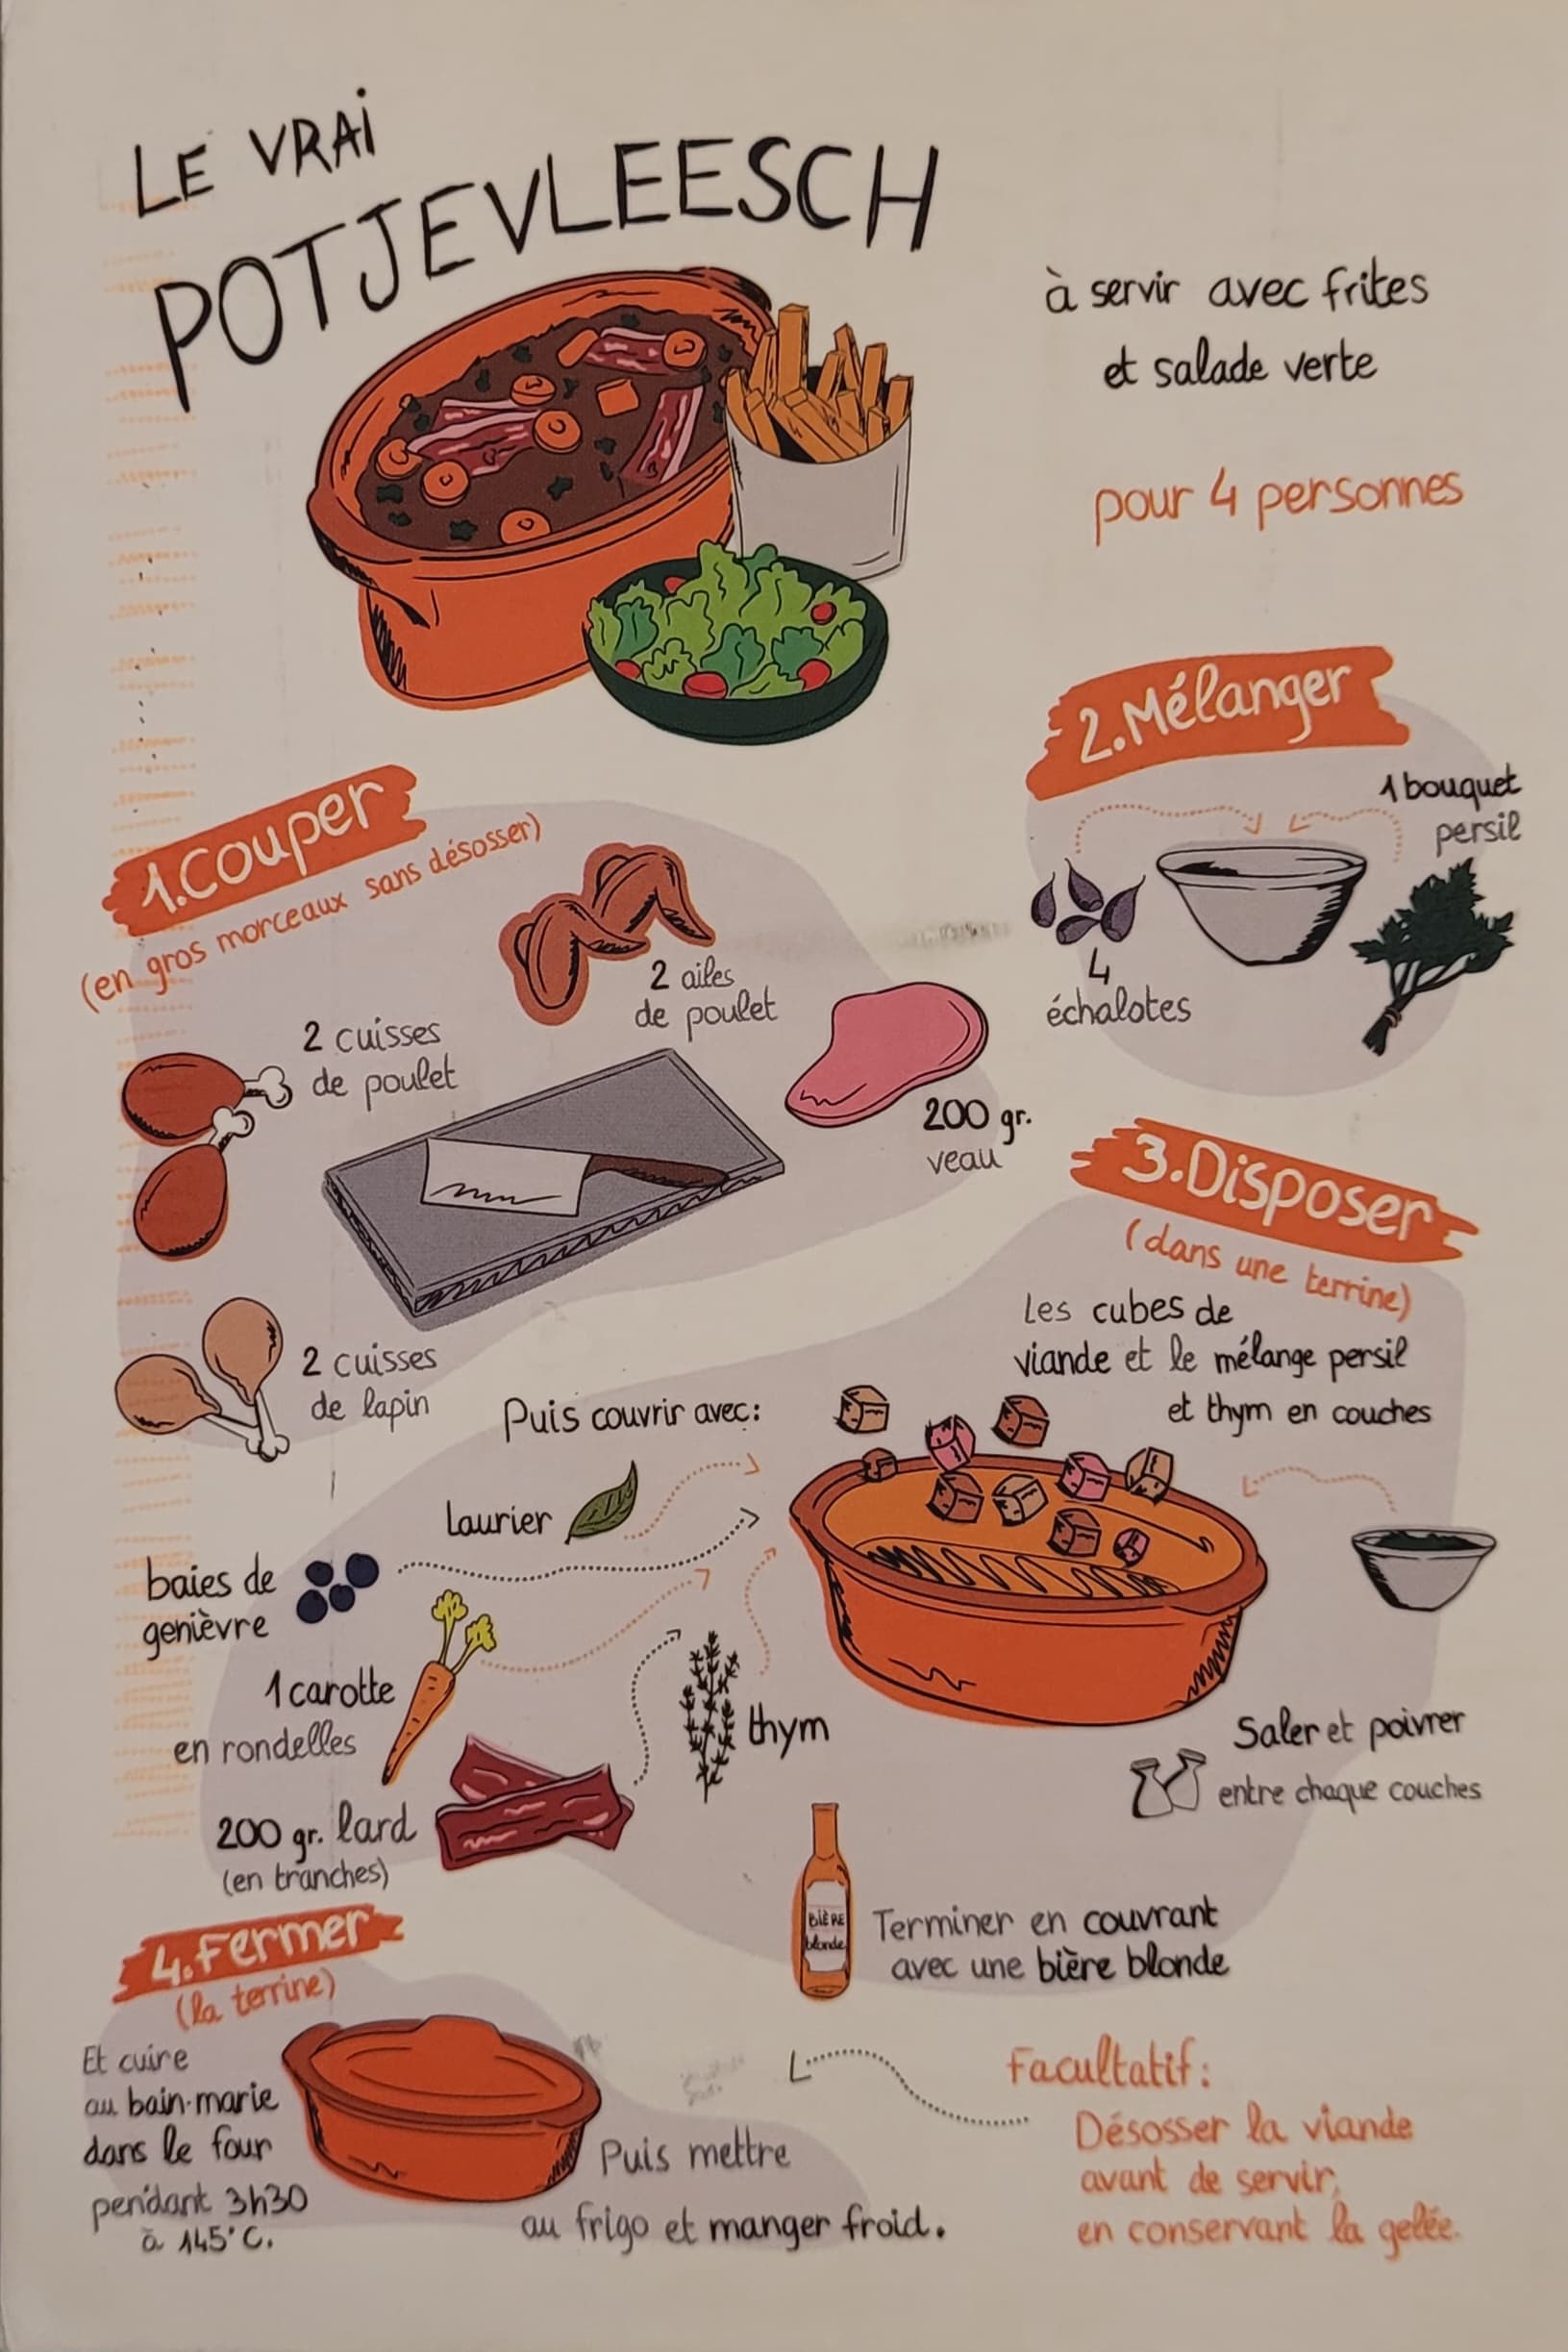 LE VRAI
POTJEVLEESCH
à servir avec frites
et salade verte
pour 4 personnes
1.Couper
(en gros morceaux sans désosser)
2 ailes
de poulet
2 cuisses
de poulet
200 gr.
veau
2 cuisses
de lapin
2.Mélanger
1 bouquet
persil
4
échalotes
3.Disposer
(dans une terrine)
Les cubes de
viande et le mélange persil
et thym en couches
Puis couvrir avec:
Laurier
baies de
genièvre
1 carotte
en rondelles
thym
200 gr. lard
(en tranches)
Saler et poivrer
entre chaque couches
BIÈRE
blonde
Terminer en couvrant
avec une bière blonde
4.Fermer
(la terrine)
Et cuire
au bain-marie
dans le four
pendant 3h30
à 145°C.
Puis mettre
au frigo et manger froid.
Facultatif:
Désosser la viande
avant de servir,
en conservant la gelée.